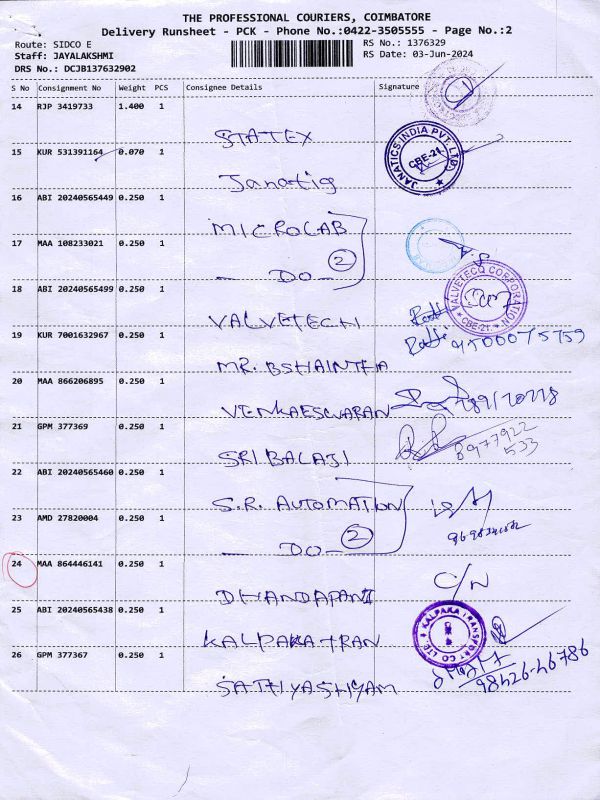 THE PROFESSIONAL COURIERS, COIMBATORE
Delivery Runsheet - PCK - Phone No.:0422-3505555 - Page No.:2
Route: SIDCO E
RS No.: 1376329
Staff: JAYALAKSHMI
RS Date: 03-Jun-2024
DRS No.: DCJB137632902
S No Consignment No Weight PCS Consignee Details Signature
14 RJP 3419733 1.400 1
STATEX
15 KUR 531391164 0.070 1
JANATICS INDIA PVT. LTD.
CBE-21
Janatig
16 ABI 20240565449 0.250 1
MICROLAB
17 MAA 108233021 0.250 1
2
DO
18 ABI 20240565499 0.250 1
VALVETECQ CORPORATION
CBE-21.
VALVETECH
19 KUR 7001632967 0.250 1
MR. BSHAINTHA
20 MAA 866206895 0.250 1
VENKAESWARAN
21 GPM 377369 0.250 1
8977922
533
SRI BALAJI
22 ABI 20240565460 0.250 1
S.R. AUTOMATION
23 AMD 27820004 0.250 1
2
DO
24 MAA 864446141 0.250 1
C/N
DHANDAPANI
25 ABI 20240565438 0.250 1
KALPAKA TRANSPORT CO LTD
KALPAKA TRAN
26 GPM 377367 0.250 1
98426-46786
SATHIYASHYAM